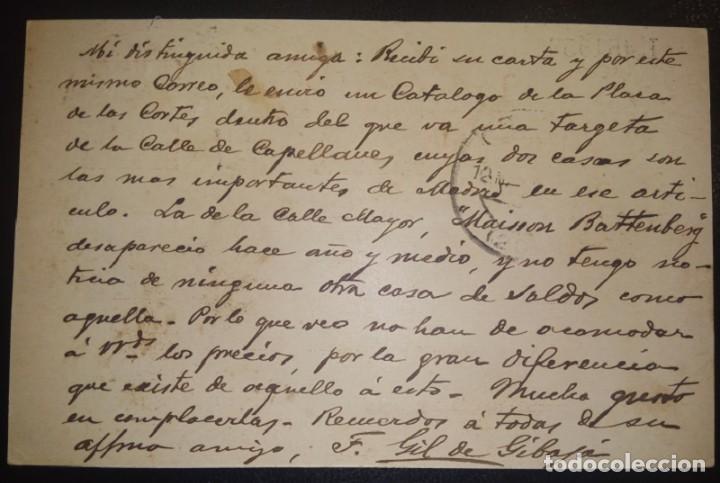 Mi distinguida amiga: Recibi su carta y por este
mismo Correo, le envio un Catalogo de la Plaza
de las Cortes dentro del que va una targeta
de la Calle de Capellanes cuyas dos casas son
las mas importantes de Madrid en ese arti-
culo. La de la Calle Mayor, "Maisson Battenberg"
desaparecio hace año y medio, y no tengo no-
ticia de ninguna otra casa de saldos como
aquella. Por lo que veo no han de acomodar
á Vds los precios, por la gran diferencia
que existe de aquello á esto. Mucho gusto
en complacerlas. Recuerdos á todas de su
affmo amigo, F. Gil de Gibaja
todocoleccion.net